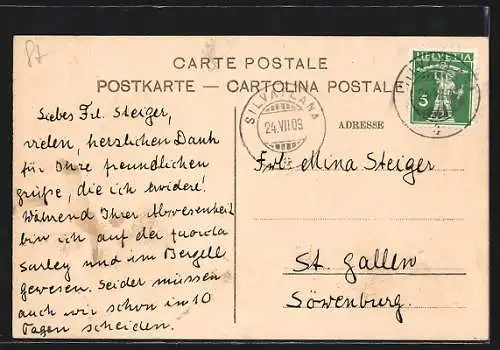 87
CARTE POSTALE
POSTKARTE — CARTOLINA POSTALE
HELVETIA
5
SILVAPLANA
24.VII.09
ADRESSE
Liebes Frl. Steiger,
vielen, herzlichen Dank
für Ihre freundlichen
grüße, die ich erwidere!
Während Ihrer Abwesenheit
bin ich auf der Fuorcla
Surley und im Bergell
gewesen. Leider müssen
auch wir schon in 10
Tagen scheiden.
Frl. Mina Steiger
St. Gallen
Löwenburg.